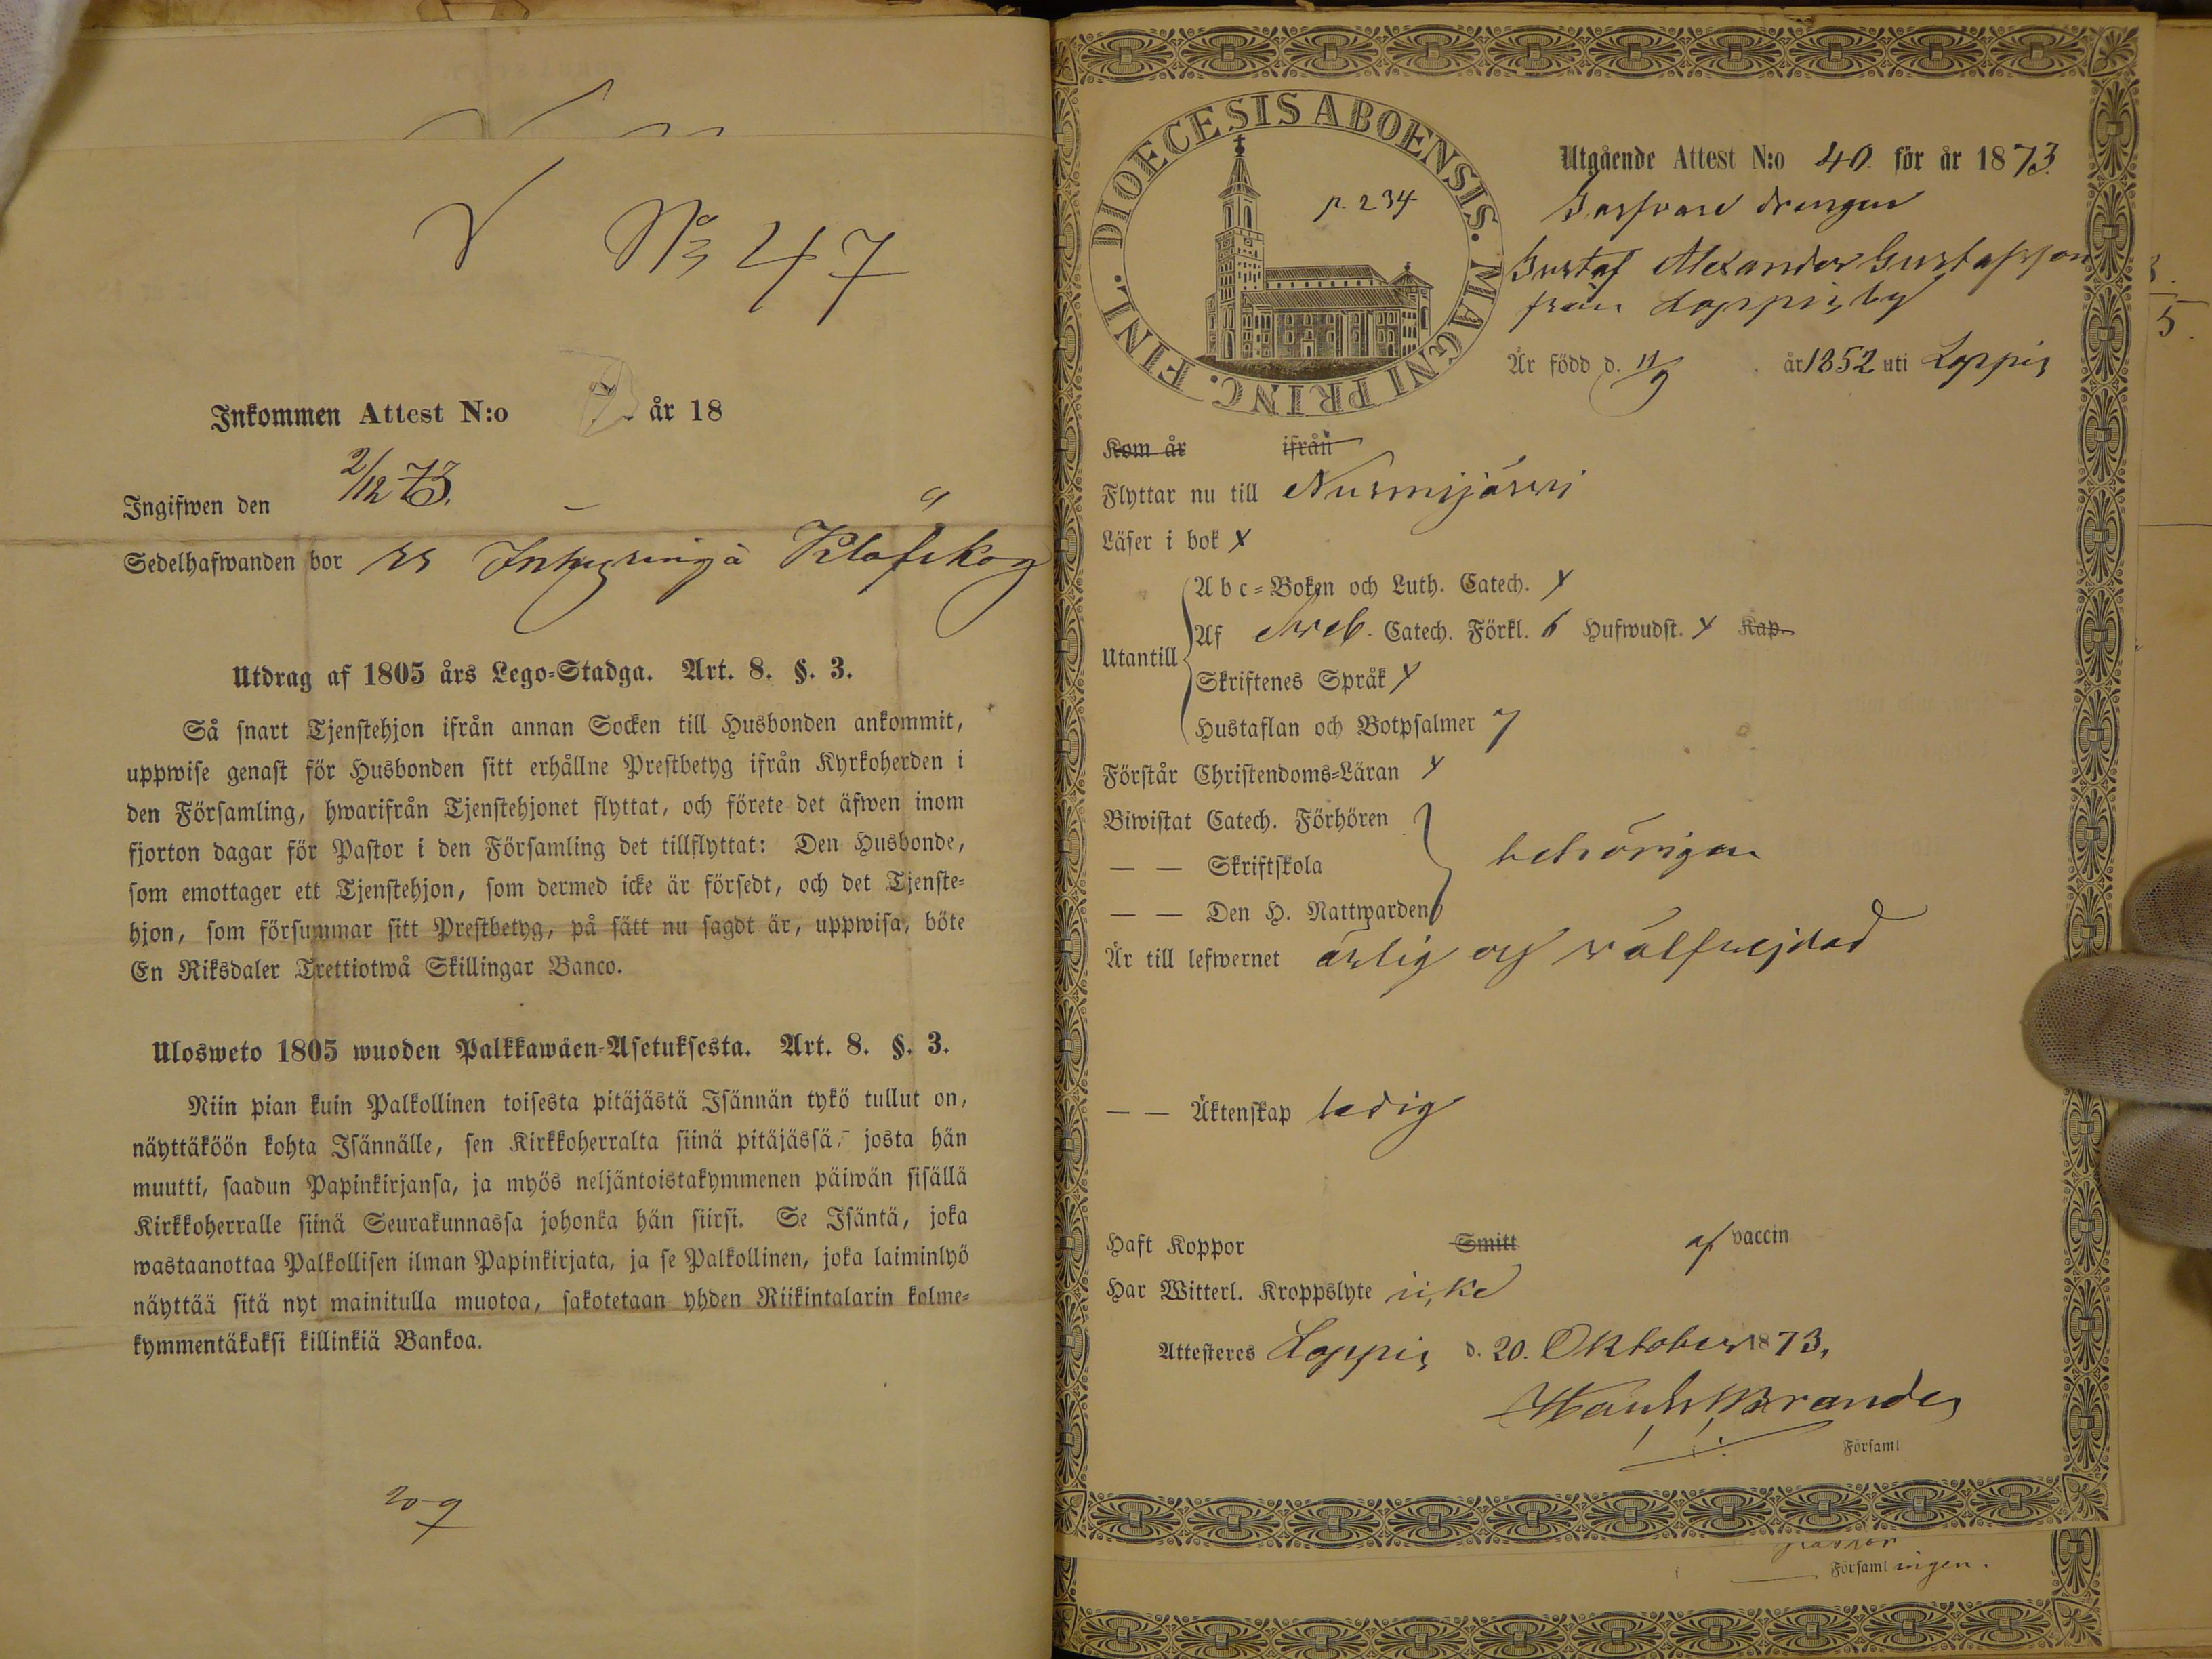 No 47
Inkommen Attest N:o år 18
Ingifwen den 2/12 73.
Sedelhafwanden bor å Klofskog
Utdrag af 1805 års Lego-Stadga. Art. 8. §. 3.
Så snart Tjenstehjon ifrån annan Socken till Husbonden ankommit,
uppwise genast för Husbonden sitt erhållne Prestbetyg ifrån Kyrkoherden i
den Församling, hwarifrån Tjenstehjonet flyttat, och förete det äfwen inom
fjorton dagar för Pastor i den Församling det tillflyttat: Den Husbonde,
som emottager ett Tjenstehjon, som dermed icke är försedt, och det Tjenste-
hjon, som försummar sitt Prestbetyg, på sätt nu sagdt är, uppwisa, böte
En Riksdaler Trettiotwå Skillingar Banco.
Ulosweto 1805 wuoden Palkkawäen-Asetuksesta. Art. 8. §. 3.
Niin pian kuin Palkollinen toisesta pitäjästä Isännän tykö tullut on,
näyttäköön kohta Isännälle, sen Kirkkoherralta siinä pitäjässä, josta hän
muutti, saadun Papinkirjansa, ja myös neljäntoistakymmenen päiwän sisällä
Kirkkoherralle siinä Seurakunnassa johonka hän siirsi. Se Isäntä, joka
wastaanottaa Palkollisen ilman Papinkirjata, ja se Palkollinen, joka laiminlyö
näyttää sitä nyt mainitulla muotoa, sakotetaan yhden Riikintalarin kolme-
kymmentäkaksi killinkiä Bankoa.
209
DIOECESIS ABOENSIS. MAGNI PRINC. FINL.
p. 234
Utgående Attest N:o 40. för år 1873.
drengen
Gustaf Alexander Gustafsson
från Loppis by
Är född d. 11/9 år 1852 uti Loppis
Kom år ifrån
Flyttar nu till Nurmijärwi
Läser i bok x
Utantill
Abc-Boken och Luth. Catech. x
Af Sweb. Catech. Förkl. 6 Hufwudst. x Kap.
Skriftenes Språk x
Hustaflan och Botpsalmer 7
Förstår Christendoms-Läran x
Biwistat Catech. Förhören
— — Skriftskola behörigen
— — Den H. Nattwarden
Är till lefwernet ärlig och wälfrejdad
— — Äktenskap ledig
Haft Koppor Smitt af vaccin
Har Witterl. Kroppslyte icke
Attesteres Loppis d. 20. Oktober 1873.
Brander
i Församl
pastor
i Församlingen.